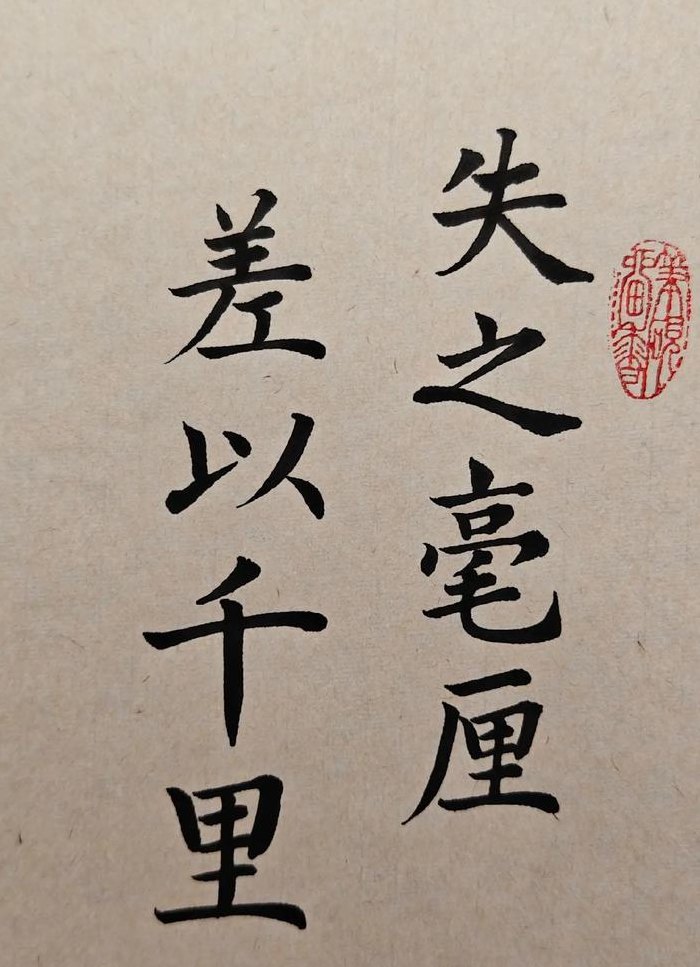 失之毫厘
差以千里